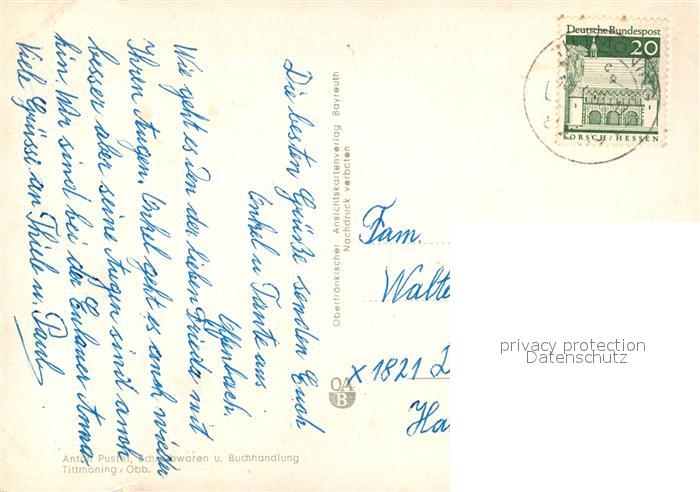 Die besten Grüße senden Euch
Onkel u Tante aus
Offenbach.
Wie geht es den der lieben Frieda mit
Ihren Augen, Onkel geht es auch wieder
besser aber seine Augen sind auch
hin. Wir sind bei der Anna
Viele Grüsse an Thiele u. Paul
Oberfränkischer Ansichtskartenverlag Bayreuth
Nachdruck verboten
OA
B
Anton Pustet, Schreibwaren u. Buchhandlung
Tittmoning/Obb.
Deutsche Bundespost
20
LORSCH/HESSEN
Fam.
Walte
X 1821
Ha
privacy protection
Datenschutz